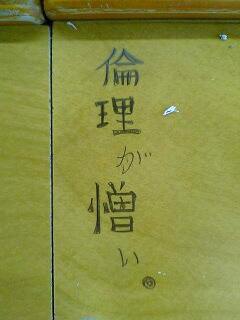 倫理が憎い。